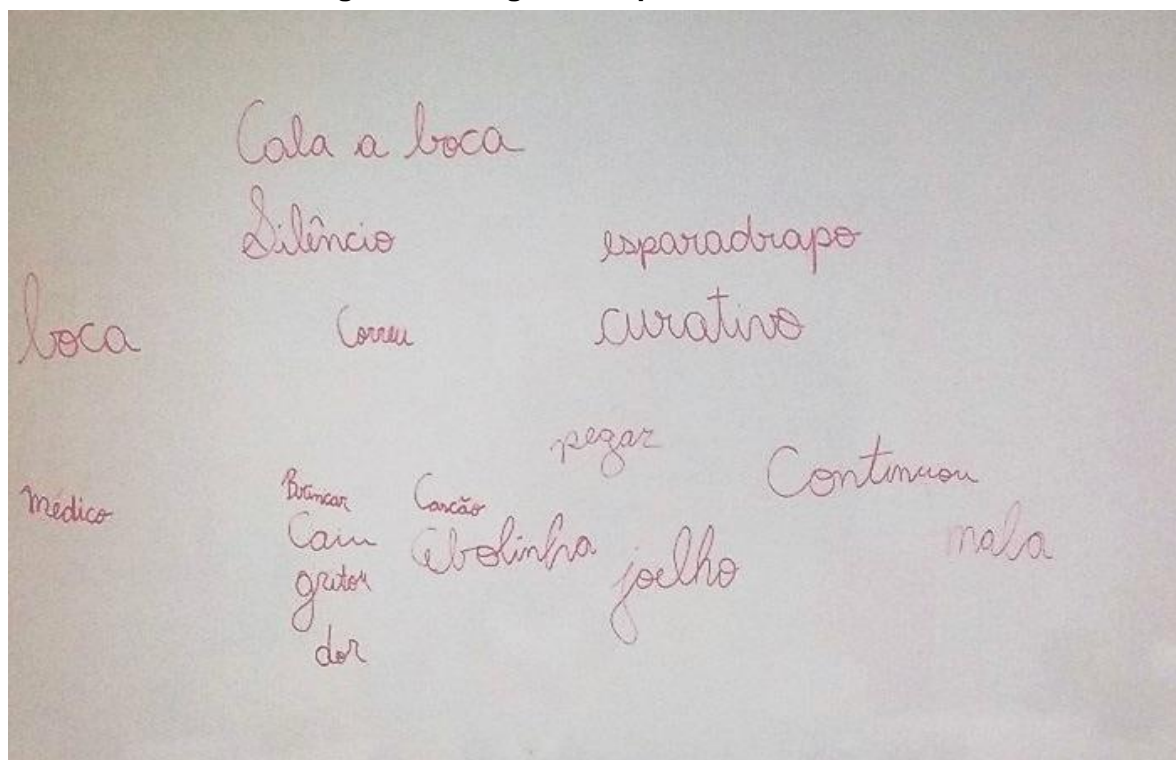 Cala a boca
Silêncio esparadrapo
boca Correu curativo
pegar
Continuou
médico Brincar Cascão
Caiu Cebolinha joelho mala
gritou
dor